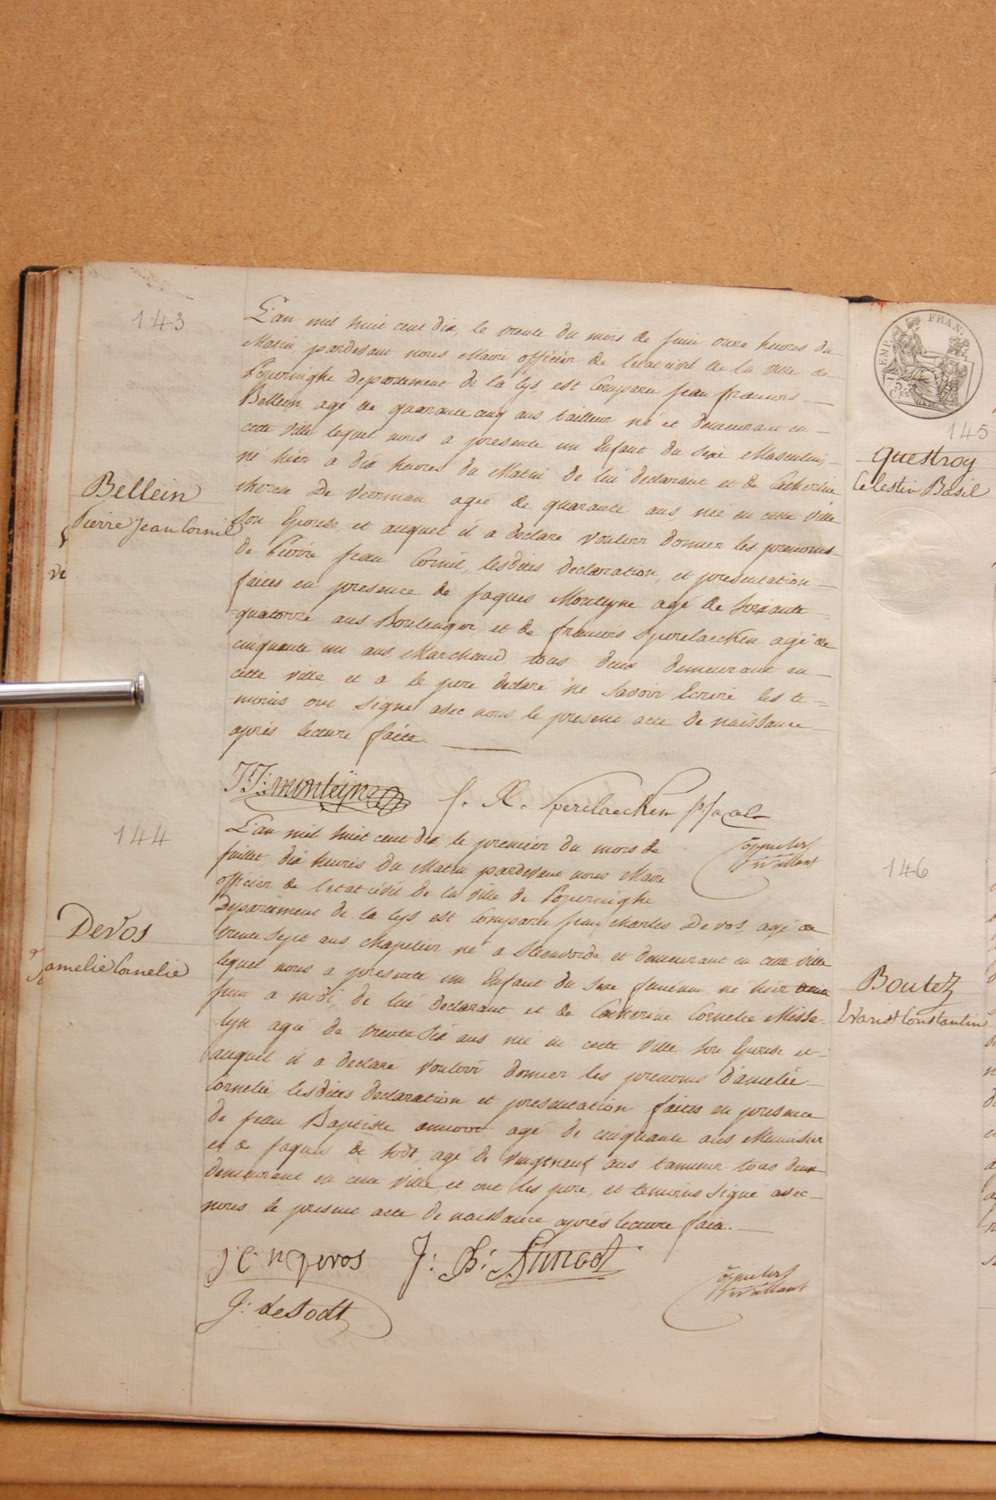 143
Bellein
Pierre Jean Cornil
L'an mil huit cent dix le trente du mois de juin onze heures du
Matin pardevant nous Maire officier de l'etat civil de la ville de
Poperinghe departement de la Lys est Comparu Jean francois
Bellein agé de quarante cinq ans tailleur né et demeurant en
cette Ville lequel nous a presenté un Enfant du sexe Masculin,
né hier a dix heures du Matin de lui declarant et de Catherine
therese De Veerman agée de quarante ans née en cette Ville
Son Epouse, et auquel il a declaré Vouloir donner les prenoms
de Pierre Jean Cornil, lesdites declaration, et presentation
faites en presence de Jaques Monteyne agé de soixante
quatorze ans Boulenger et de francois Sperelaecken agé de
cinquante un ans Marchand tous deux demeurant en
cette ville et a le pere declaré ne Savoir Ecrire les te-
moins ont signé avec nous le present acte de naissance
après lecture faite.
J J: monteyne
f. X. Sperelaecken
144
Devos
amelie Cornelie
L'an mil huit cent dix le premier du mois de
juillet dix heures du Matin pardevant nous Maire
officier de l'etat civil de la Ville de Poperinghe
Departement de la Lys est Comparu Jean Charles Devos, agé de
trente sept ans chapelier né a Steenvorde et demeurant en cette ville
lequel nous a presenté un Enfant du Sexe feminin né hier
juin a midi, de lui declarant et de Catherine Cornelie Misse-
lyn agée de trente six ans née en cette Ville Son Epouse et
auquel il a declaré Vouloir donner les prenoms d'amelie
Cornelie, lesdites declaration et presentation faites en presence
de Jean Baptiste agé de cinquante ans Menuisier
et de Jaques de Sodt, agé de Vingt neuf ans tanneur tous deux
demeurant en cette Ville, et ont les pere, et temoins signé avec
nous le present acte de naissance après lecture faite.
J C Devos
J: B:
J: de Sodt
145
Questroy
Celestin Basil
146
Boutez
Constantin